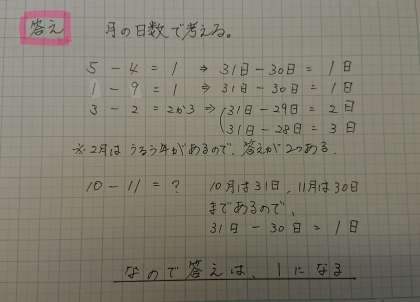 答え 月の日数で考える。
5 - 4 = 1 ⇒ 31日 - 30日 = 1日
1 - 9 = 1 ⇒ 31日 - 30日 = 1日
3 - 2 = 2か3 ⇒ (31日 - 29日 = 2日
31日 - 28日 = 3日
※2月はうるう年があるので、答えが2つある.
10 - 11 = ? 10月は31日, 11月は30日
まであるので、
31日 - 30日 = 1日
なので答えは、1になる